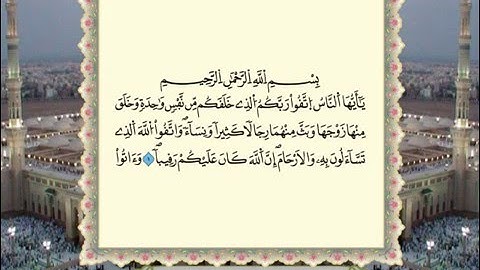 بِسْمِ اِ۬للَّهِ اِ۬لرَّحْمَٰنِ اِ۬لرَّحِيمِ
يَٰٓأَيُّهَا اَ۬لنَّاسُ اُ۪تَّقُواْ رَبَّكُمُ اُ۬لذِے خَلَقَكُم مِّن نَّفْسٖ وَٰحِدَةٖ وَخَلَقَ
مِنْهَا زَوْجَهَا وَبَثَّ مِنْهُمَا رِجَالاٗ كَثِيراٗ وَنِسَآءٗۖ وَاتَّقُواْ اُ۬للَّهَ اَ۬لذِے
تَسَّآءَلُونَ بِهِۦ وَالَارْحَامَۖ إِنَّ اَ۬للَّهَ كَانَ عَلَيْكُمْ رَقِيباٗۖ ١ وَءَاتُواْ